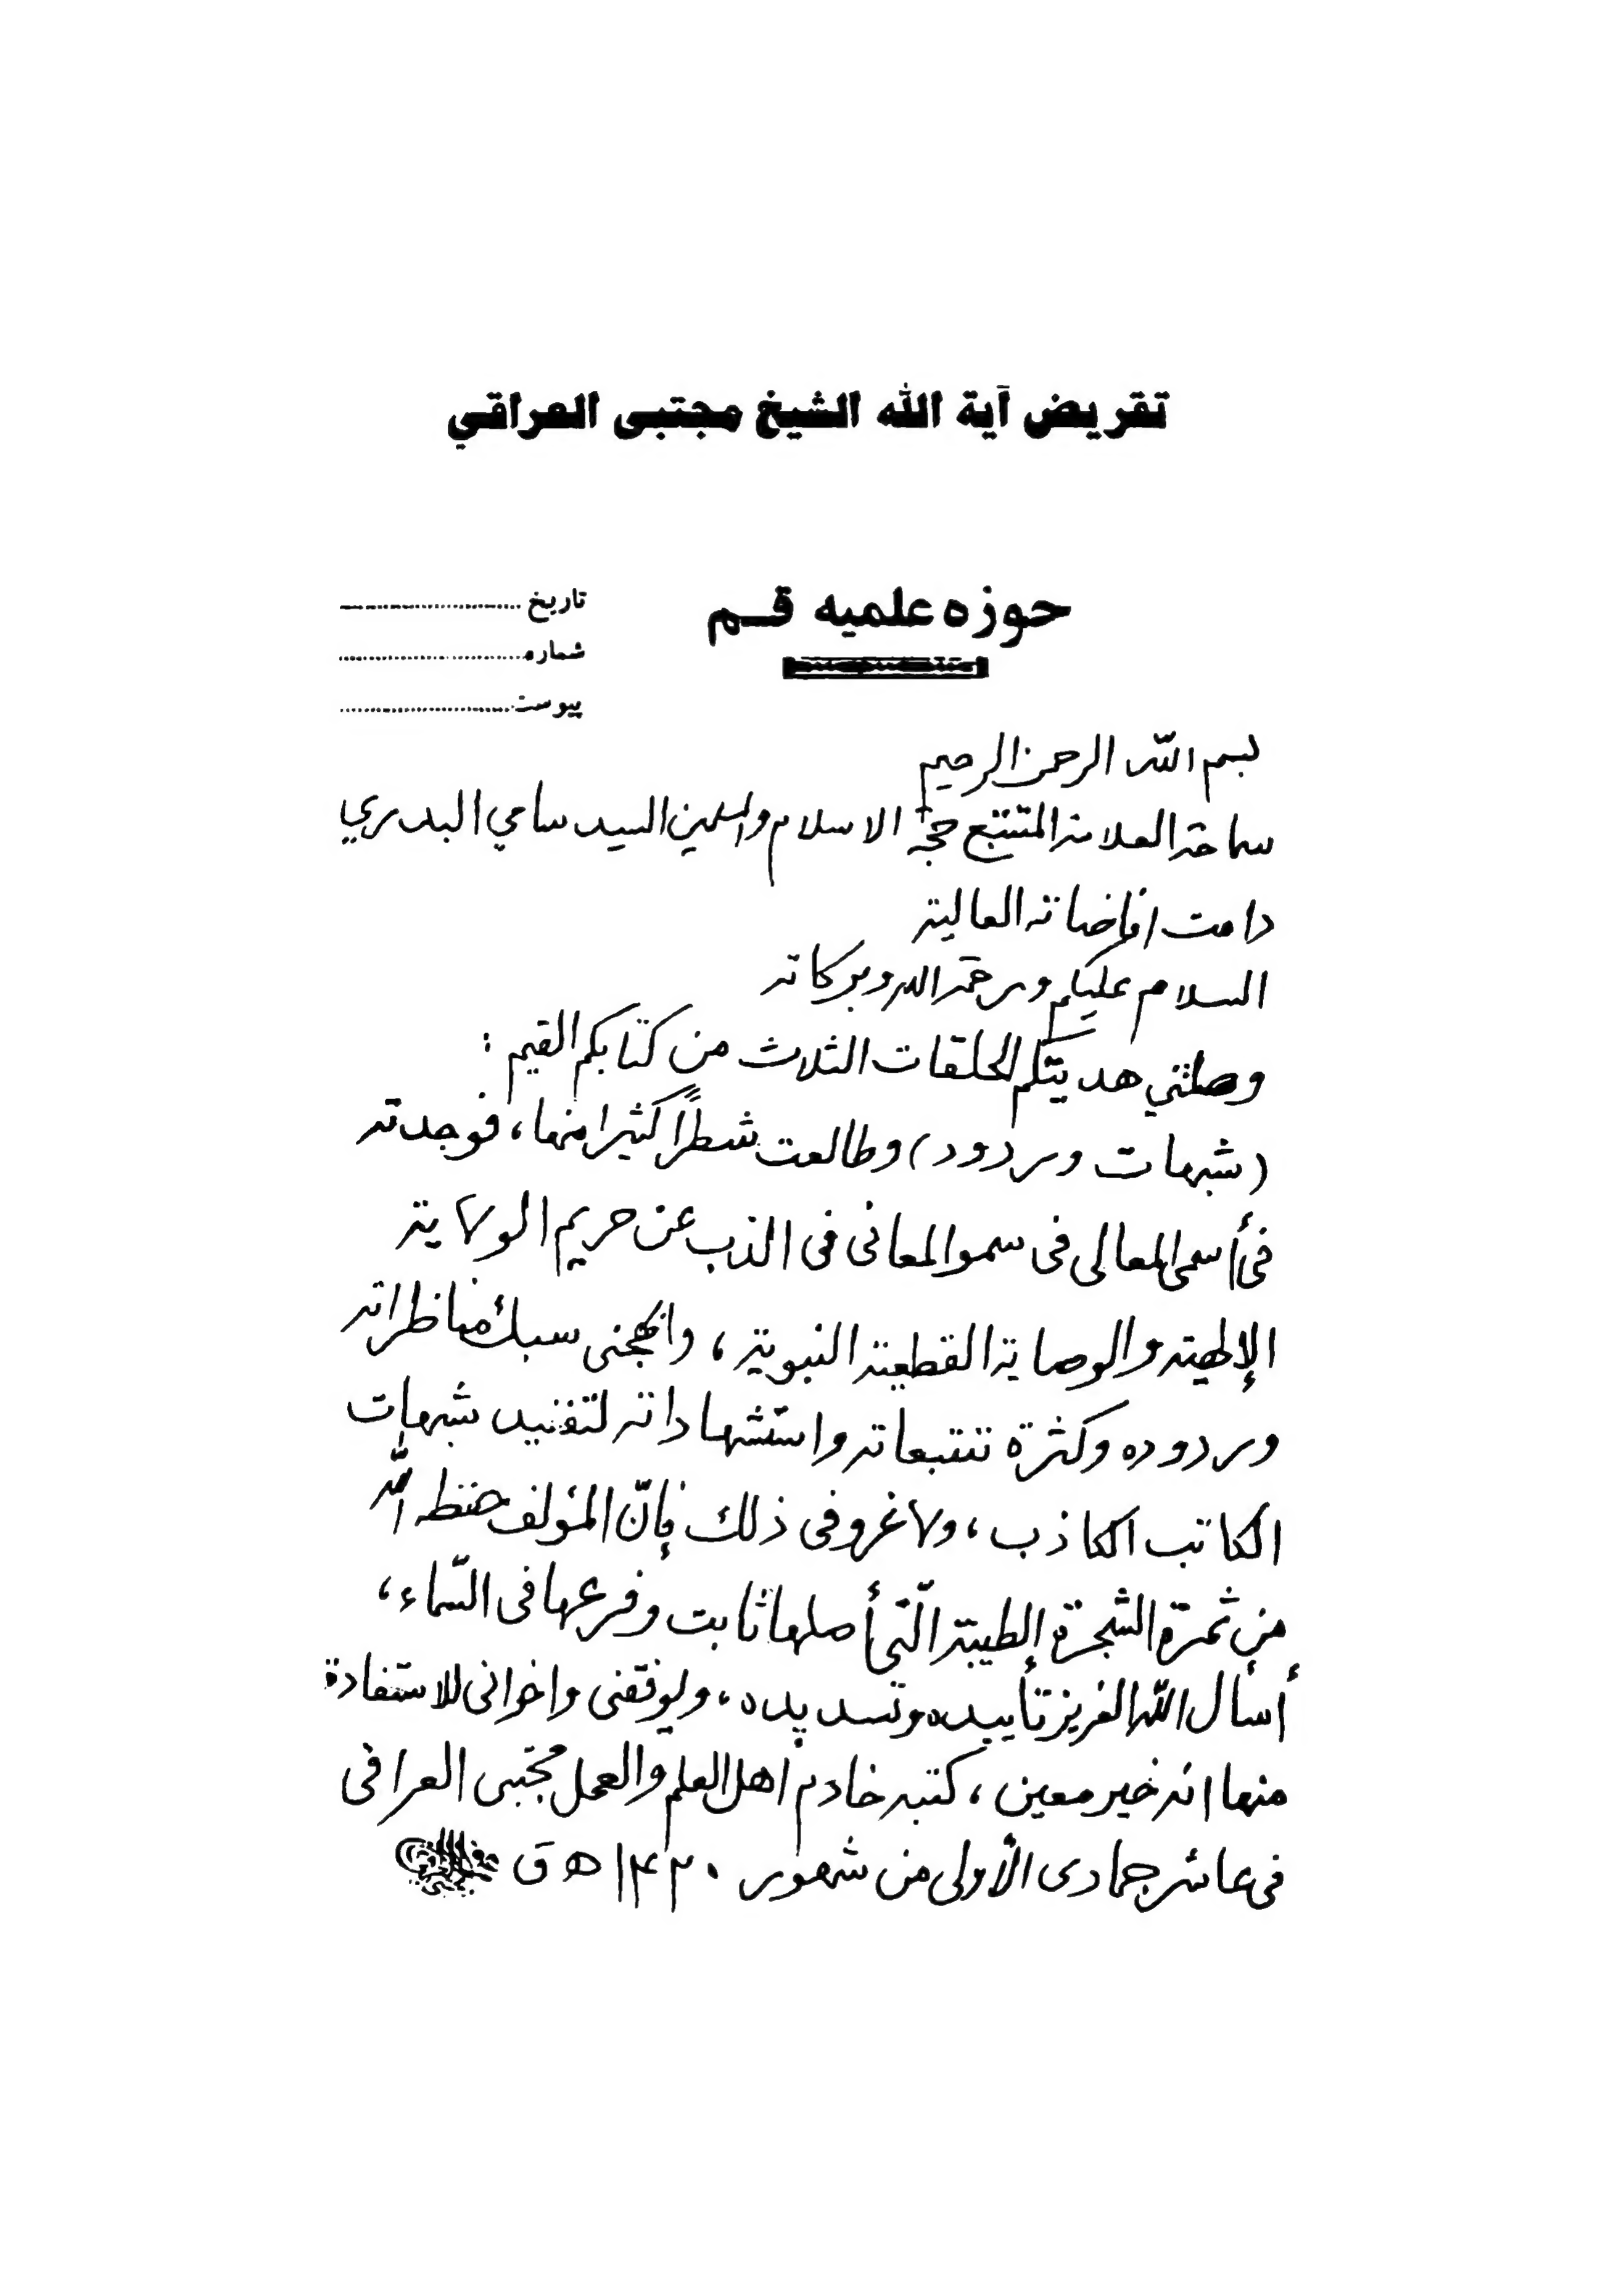 تقريض آية الله الشيخ مجتبى العراقي
حوزه علميه قم
تاريخ
شماره
پيوست
بسم الله الرحمن الرحيم
سماحة العلامة المتتبع حجة الاسلام والمسلمين السيد سامي البدري
دامت افاضاته العالية
السلام عليكم ورحمة الله وبركاته
وصلتني هديتكم الحلقات الثلاث من كتابكم القيم :
(شبهات وردود) وطالعت شطراً كثيرا منها، فوجدته
في أسمى المعالى فى سمو المعانى فى الذب عن حريم الولاية
الإلهية والوصاية القطعية النبوية، وابهجنى سبك مناظراته
وردوده وكثرة تتبعاته واستشهاداته لتفنيد شبهات
الكاتب الكاذب، ولا غرو فى ذلك فإنّ المؤلف حفظه الله
من ثمرة الشجرة الطيبة الّتي أصلها ثابت وفرعها فى السّماء،
أسأل الله العزيز تأييده وتسديده، ويوفقنى واخوانى للاستفادة
منها انه خير معين، كتبه خادم اهل العلم والعمل مجتبى العراقى
فى عاشر جمادى الأولى من شهور ۱۴۲۰ ه ق